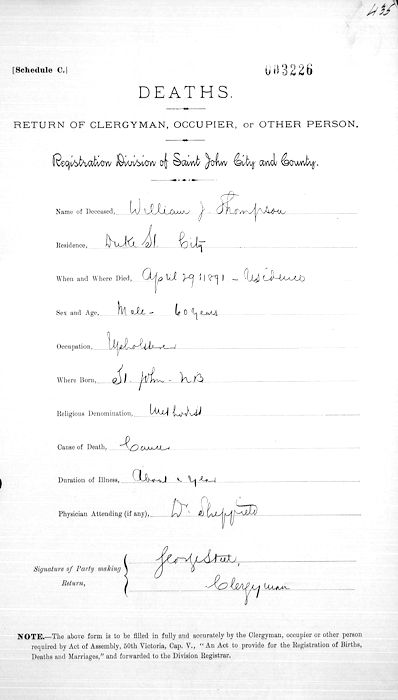 435
[Schedule C.] 003226
DEATHS.
RETURN OF CLERGYMAN, OCCUPIER, or OTHER PERSON.
Registration Division of Saint John City and County.
Name of Deceased, William J. Thompson
Residence, Duke St. City
When and Where Died, April 29 1891 - Residence
Sex and Age, Male - 60 years
Occupation, Upholsterer
Where Born, St. John - NB
Religious Denomination, Methodist
Cause of Death, Cancer
Duration of Illness, About a year
Physician Attending (if any), Dr. Sheffield
Signature of Party making Return, George
Clergyman
NOTE.—The above form is to be filled in fully and accurately by the Clergyman, occupier or other person
required by Act of Assembly, 50th Victoria, Cap. V., "An Act to provide for the Registration of Births,
Deaths and Marriages," and forwarded to the Division Registrar.